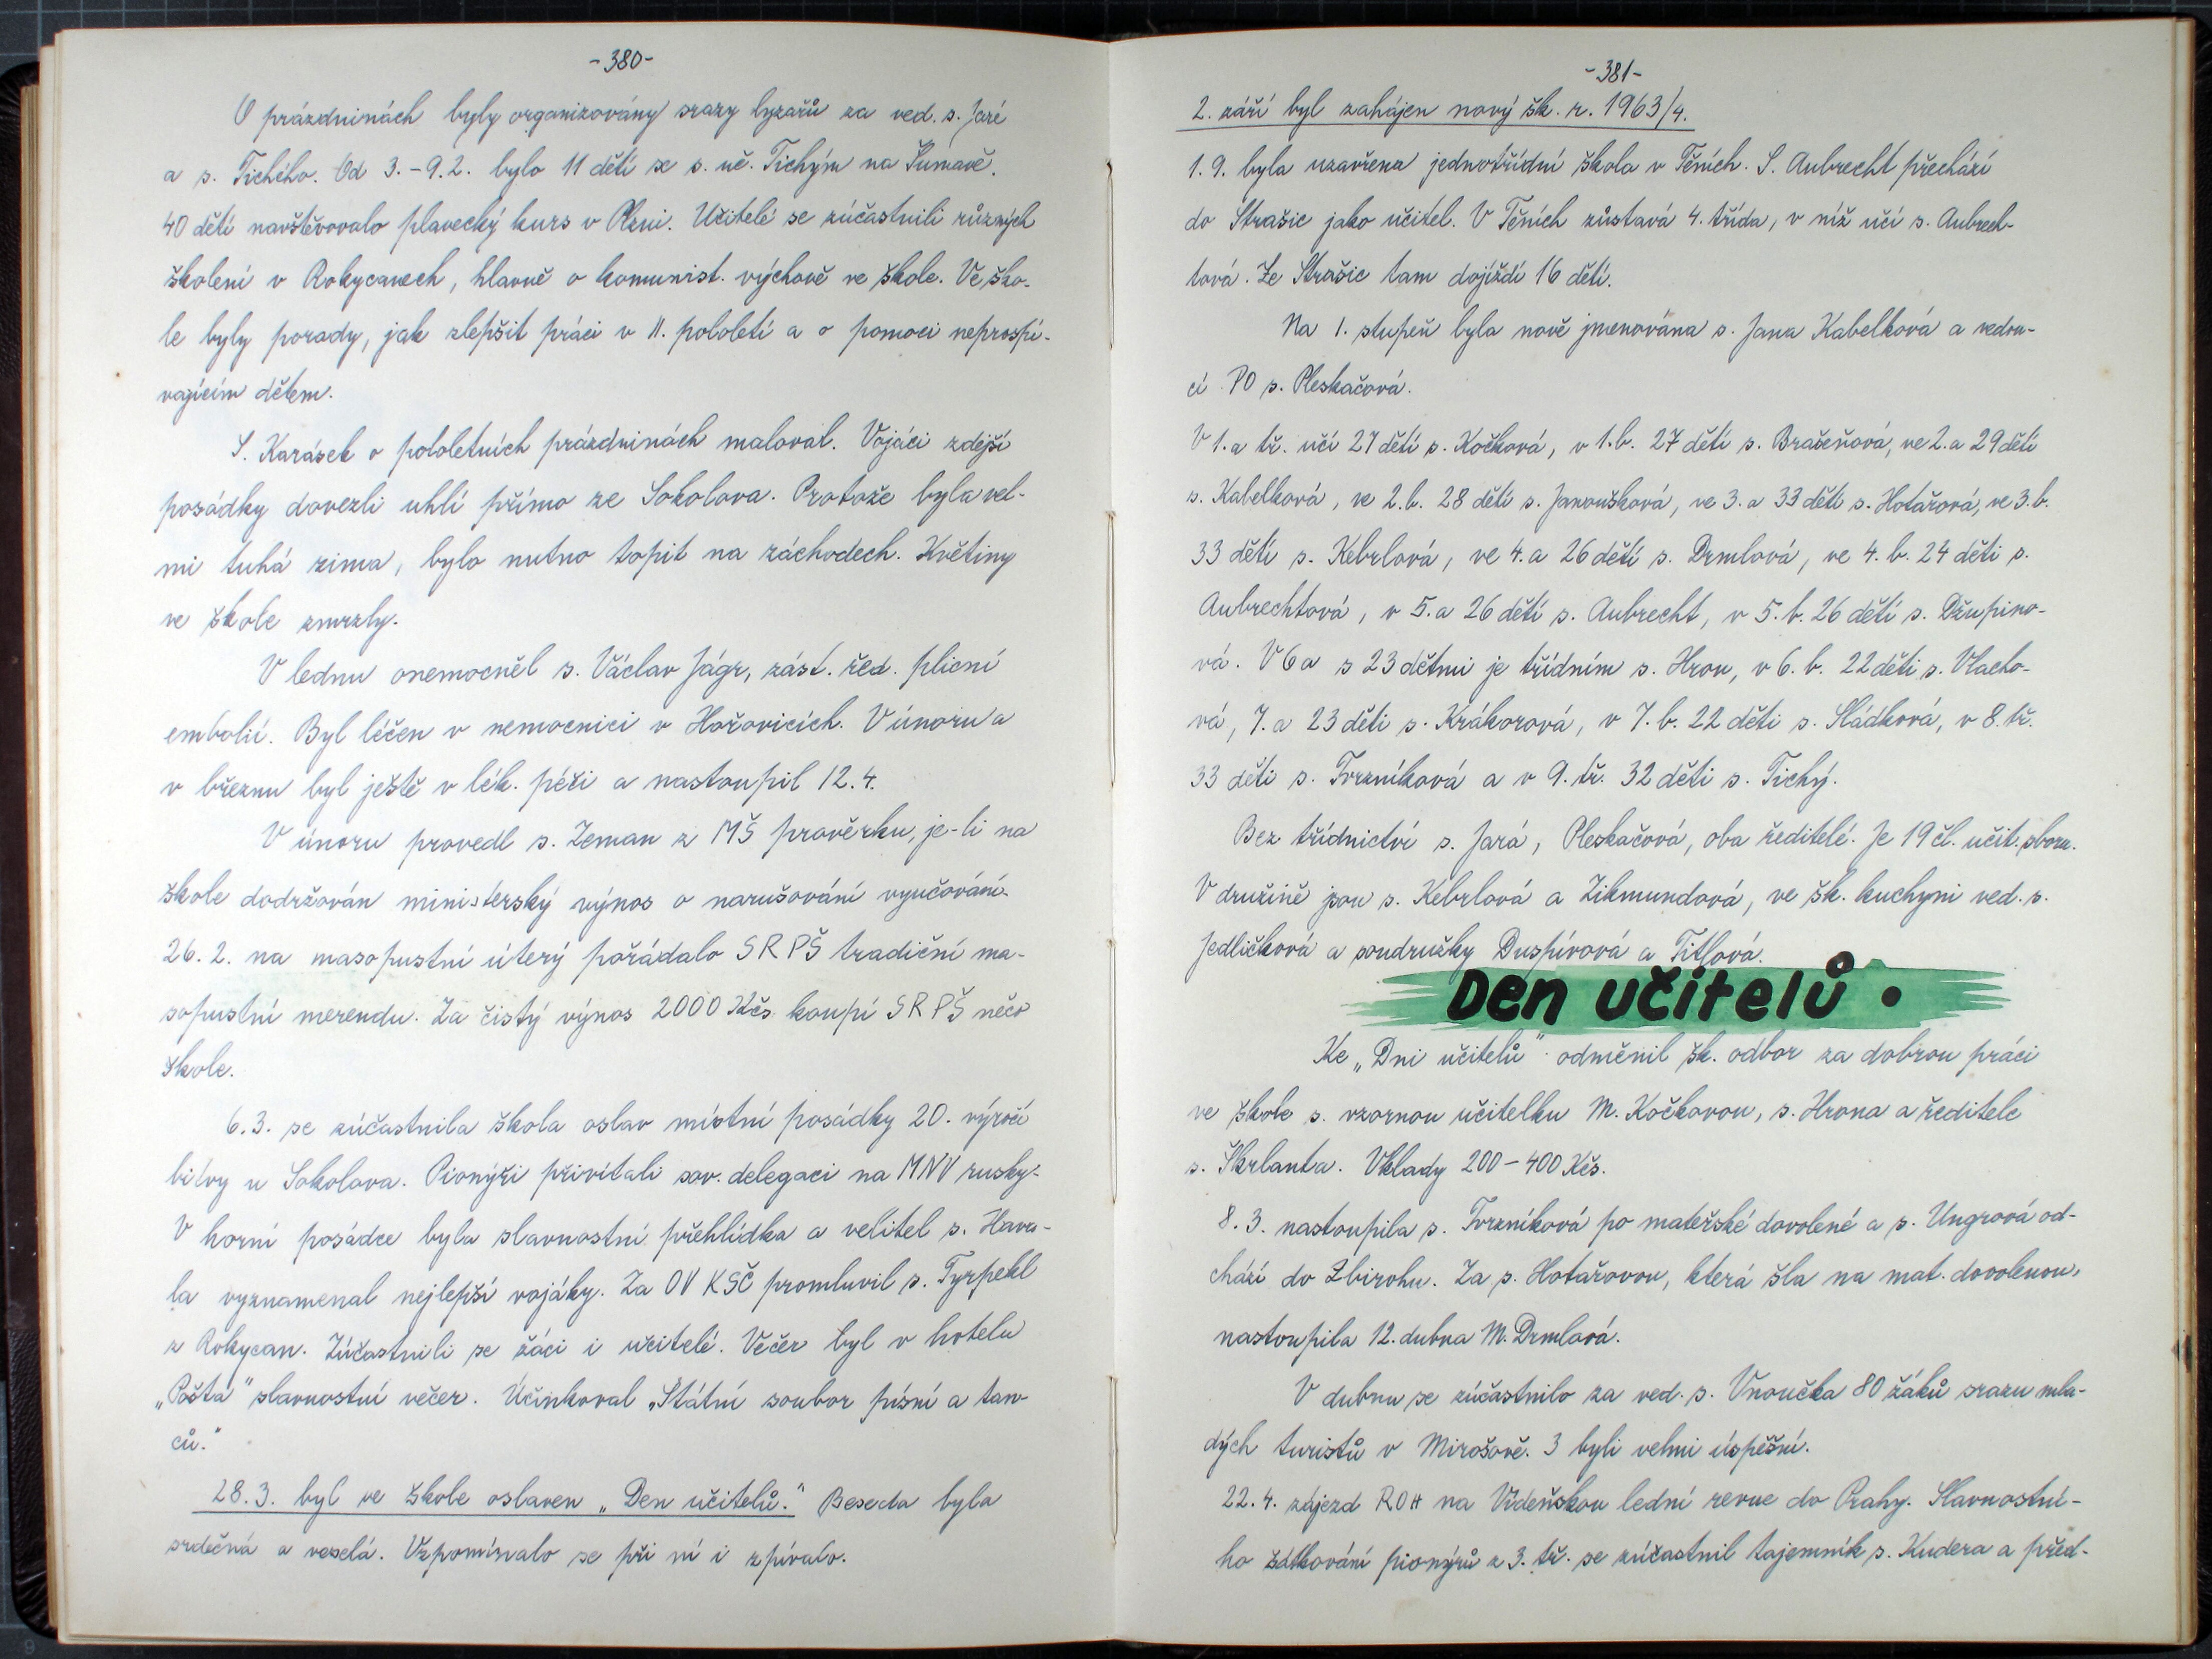 -380-
O prázdninách byly organizovány srazy lyžařů za ved. s. Jaré
a s. Tichého. Od 3.-9.2. bylo 11 dětí se s. uč. Tichým na Šumavě.
40 dětí navštěvovalo plavecký kurs v Plzni. Učitelé se zúčastnili různých
školení v Rokycanech, hlavně o komunist. výchově ve škole. Ve ško-
le byly porady, jak zlepšit práci v II. pololetí a o pomoci neprospí-
vajícím dětem.
S. Karásek o pololetních prázdninách maloval. Vojáci zdejší
posádky dovezli uhlí přímo ze Sokolova. Protože byla vel-
mi tuhá zima, bylo nutno topit na záchodech. Květiny
ve škole zmrzly.
V lednu onemocněl s. Václav Jágr, zást. řed. plicní
embolií. Byl léčen v nemocnici v Hořovicích. V únoru a
v březnu byl ještě v lék. péči a nastoupil 12.4.
V únoru provedl s. Zeman z MŠ prověrku, je-li na
škole dodržován ministerský výnos o narušování vyučování.
26. 2. na masopustní úterý pořádalo SRPŠ tradiční ma-
sopustní merendu. Za čistý výnos 2000 Kčs koupí SRPŠ něco
škole.
6.3. se zúčastnila škola oslav místní posádky 20. výročí
bitvy u Sokolova. Pionýři přivítali sov. delegaci na MNV rusky.
V horní posádce byla slavnostní přehlídka a velitel s. Hava-
la vyznamenal nejlepší vojáky. Za OV KSČ promluvil s. Tyrpekl
z Rokycan. Zúčastnili se žáci i učitelé. Večer byl v hotelu
„Pošta" slavnostní večer. Účinkoval „Státní soubor písní a tan-
ců."
28.3. byl ve škole oslaven „Den učitelů." Beseda byla
srdečná a veselá. Vzpomínalo se při ní i zpívalo.
-381-
2. září byl zahájen nový šk. r. 1963/4.
1.9. byla uzavřena jednotřídní škola v Těních. S. Aubrecht přechází
do Strašic jako učitel. V Těních zůstavá 4. třída, v níž učí s. Aubrech-
tová. Ze Strašic tam dojíždí 16 dětí.
Na 1. stupeň byla nově jmenována s. Jana Kabelková a vedou-
cí PO s. Pleskačová.
V 1.a tř. učí 27 dětí s. Kočková, v 1.b. 27 dětí s. Brašeňová, ve 2.a 29 dětí
s. Kabelková, ve 2.b. 28 dětí s. Janoušková, ve 3.a 33 dětí s. Hotařová, ve 3.b.
33 dětí s. Kebrlová, ve 4.a 26 dětí s. Drmlová, ve 4.b. 24 děti s.
Aubrechtová, v 5.a 26 dětí s. Aubrecht, v 5.b. 26 dětí s. Džupino-
vá. V 6a s 23 dětmi je třídním s. Hrou, v 6.b. 22 děti s. Vlacho-
vá, 7.a 23 děti s. Krákorová, v 7.b. 22 děti s. Sládková, v 8. tř.
33 děti s. Tvrzníková a v 9. tř. 32 děti s. Tichý.
Bez třídnictví s. Jará, Pleskačová, oba ředitelé. Je 19 čl. učit. sboru.
V družině jsou s. Kebrlová a Zikmundová, ve šk. kuchyni ved. s.
Jedličková a soudružky Duspivová a Titlová.
Den učitelů.
Ke „Dni učitelů" odměnil šk. odbor za dobrou práci
ve škole s. vzornou učitelku M. Kočkovou, s. Hrona a ředitele
s. Škrlanta. Vklady 200-400 Kčs.
8.3. nastoupila s. Tvrzníková po mateřské dovolené a s. Ungrová od-
chází do Zbirohu. Za s. Hotařovou, která šla na mat. dovolenou,
nastoupila 12. dubna M. Drmlová.
V dubnu se zúčastnilo za ved. s. Vnoučka 80 žáků srazu mla-
dých turistů v Mirošově. 3 byli velmi úspěšní.
22.4. zájezd ROH na Vídeňskou lední revue do Prahy. Slavnostní-
ho šátkování pionýrů z 3. tř. se zúčastnil tajemník s. Kudera a před-